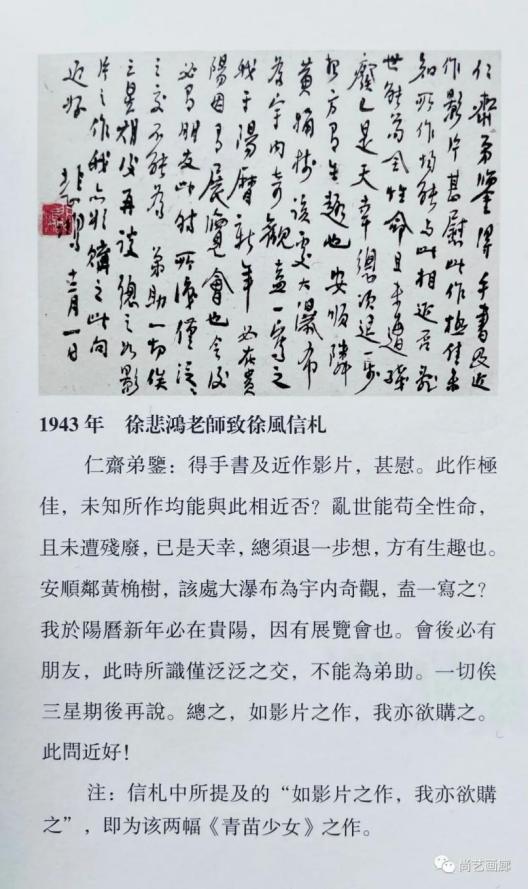 仁齋弟鑒得手書及近
作影片甚慰此作極佳未
知所作均能與此相近否亂
世能苟全性命且未遭殘
廢已是天幸總須退一步
想方有生趣也安順鄰
黃桷樹該處大瀑布
為宇內奇觀盍一寫之
我于陽曆新年必在貴
陽因有展覽會也會後
必有朋友此時所識僅泛泛
之交不能為弟助一切俟
三星期後再談總之如影
片之作我亦欲購之此問
近好 悲鴻 十二月一日
1943年 徐悲鴻老師致徐風信札
仁齋弟鑒：得手書及近作影片，甚慰。此作極
佳，未知所作均能與此相近否？亂世能苟全性命，
且未遭殘廢，已是天幸，總須退一步想，方有生趣也。
安順鄰黃桷樹，該處大瀑布為宇内奇觀，盍一寫之？
我於陽曆新年必在貴陽，因有展覽會也。會後必有
朋友，此時所識僅泛泛之交，不能為弟助。一切俟
三星期後再說。總之，如影片之作，我亦欲購之。
此問近好！
注：信札中所提及的“如影片之作，我亦欲購
之”，即为该两幅《青苗少女》之作。
尚艺画廊